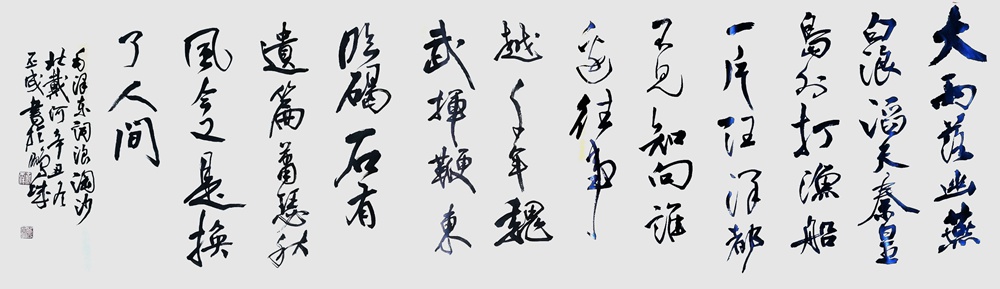 大雨落幽燕
白浪滔天秦皇
島外打漁船
一片汪洋都
不見知向誰
邊往事
越千年魏
武揮鞭東
臨碣石有
遺篇蕭瑟秋
風今又是換
了人間
毛澤東詞浪淘沙
北戴河辛丑冬
正成書於鵬城